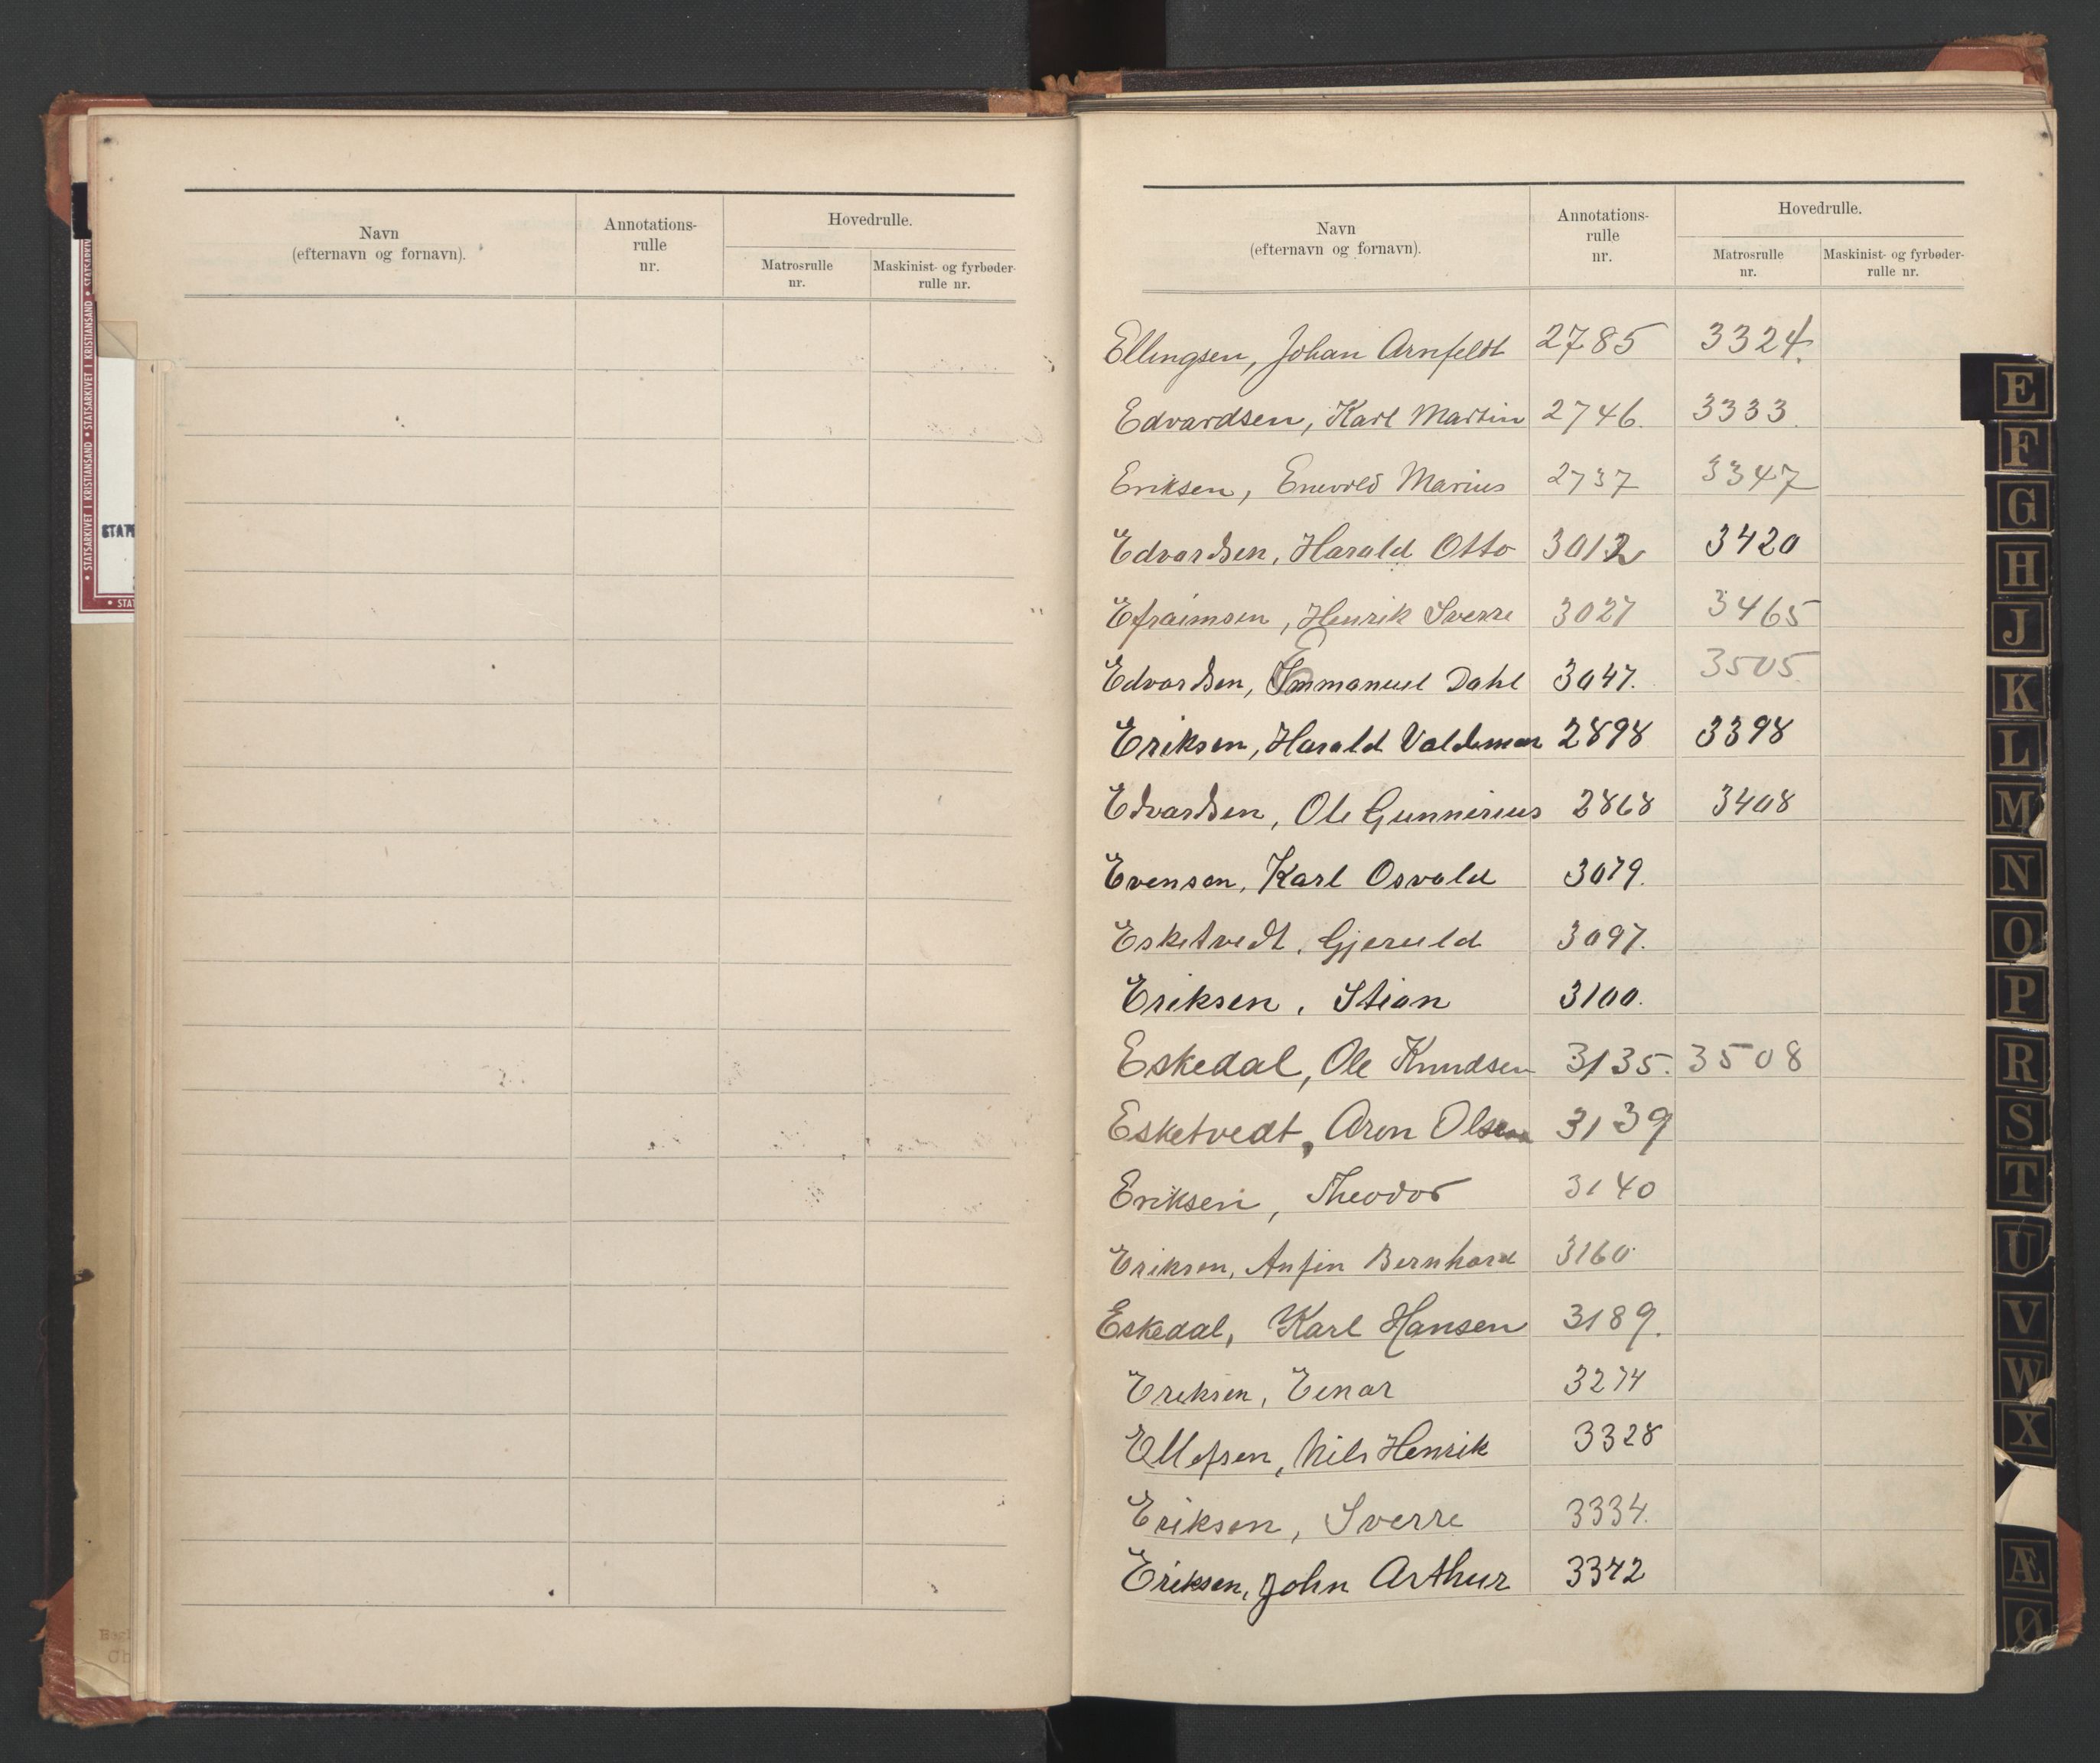 Navn
(efternavn og fornavn).
Annotations-
rulle
nr.
Hovedrulle.
Matrosrulle
nr.
Maskinist- og fyrbøder-
rulle nr.
• STATSARKIVET I KRISTIANSAND • STATSARKIVET I KRISTIANSAND • STATSARKIV
Navn
(efternavn og fornavn).
Annotations-
rulle
nr.
Hovedrulle.
Matrosrulle
nr.
Maskinist- og fyrbøder-
rulle nr.
Ellingsen, Johan Arnfeldt 2785 3324.
Edvardsen, Karl Martin 2746. 3333.
Eriksen, Enevold Marius 2737 3347
Edvardsen, Harald Otto 3012 3420
Efraimsen, Henrik Sverre 3027 3465
Edvardsen, Emmanuel Dahl 3047. 3505.
Eriksen, Harald Valdemar 2898 3398
Edvardsen, Ole Gunnerius 2868 3408
Evensen, Karl Osvald 3079.
Esketvedt, Gjeruld 3097.
Eriksen, Stian 3100.
Eskedal, Ole Knudsen 3135. 3508
Esketvedt, Aron Olsen 3139
Eriksen, Theodor 3140
Eriksen, Anfin Bernhard 3160
Eskedal, Karl Hansen 3189.
Eriksen, Einar 3274
Ellefsen, Nils Henrik 3328
Eriksen, Sverre 3334.
Eriksen, John Arthur 3342
E
F
G
H
J
K
L
M
N
O
P
R
S
T
U
V
W
X
Æ
Ø